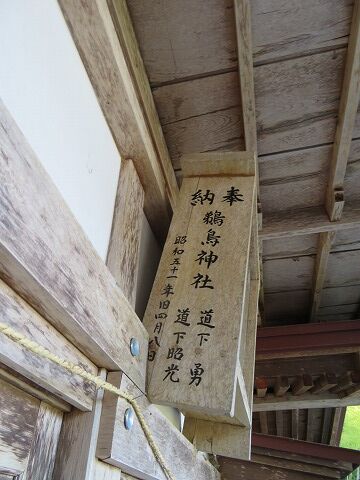 奉納
鵜鳥神社
道下 勇
道下昭光
昭和五十一年旧四月八日